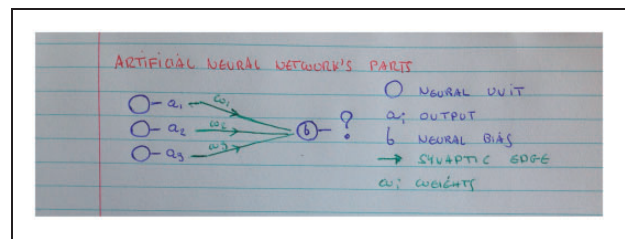 ARTIFICIAL NEURAL NETWORK'S PARTS
a₁ ω₁
a₂ ω₂
a₃ ω₃
b ?
NEURAL UNIT
aᵢ OUTPUT
b NEURAL BIAS
→ SYNAPTIC EDGE
ωᵢ WEIGHTS